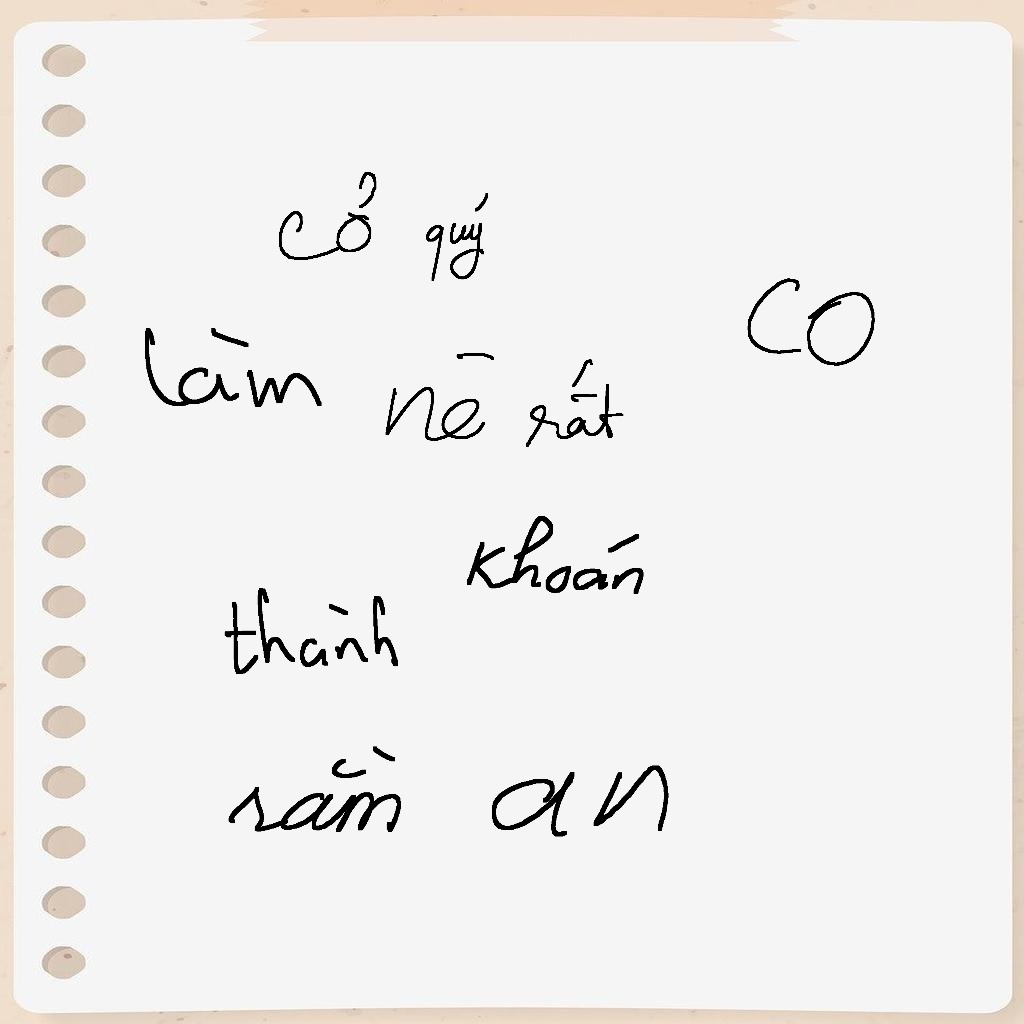 cổ quý
co
làm nề rất
khoán
thành
rằm an